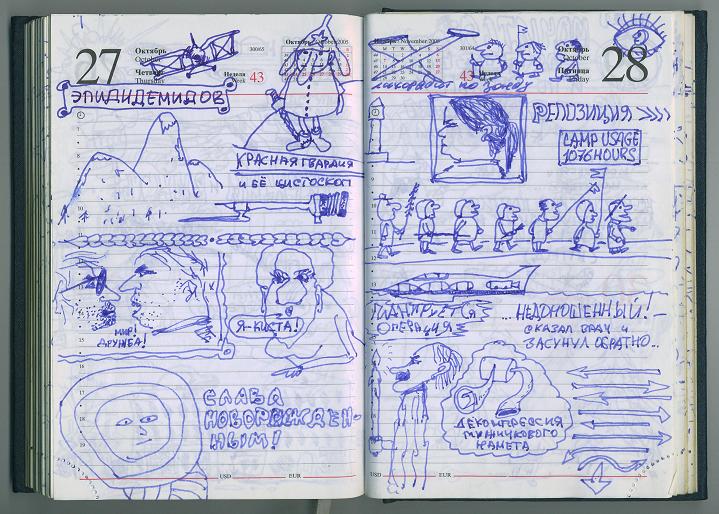 27
Октябрь
October
Четверг
Thursday
300/65
Неделя
Week
43
Октябрь
October 2005
ЭПИДИДЕМИДОВ
КРАСНАЯ ГВАРДИЯ
И ЕЁ ЦИСТОСКОП
МИР!
ДРУЖБА!
Я-КИСТА!
СЛАВА
НОВОРОЖДЕН-
НЫМ!
USD
EUR
November 2005
301/64
43
Неделя
Week
Октябрь
October
Пятница
Friday
28
РЕПОЗИЦИЯ >>>>
LAMP USAGE
1076 HOURS
ПЛАНИРУЕТСЯ
ОПЕРАЦИЯ
...НЕДОНОШЕННЫЙ! –
СКАЗАЛ ВРАЧ И
ЗАСУНУЛ ОБРАТНО...
ДЕКОМПРЕССИЯ
USD
EUR